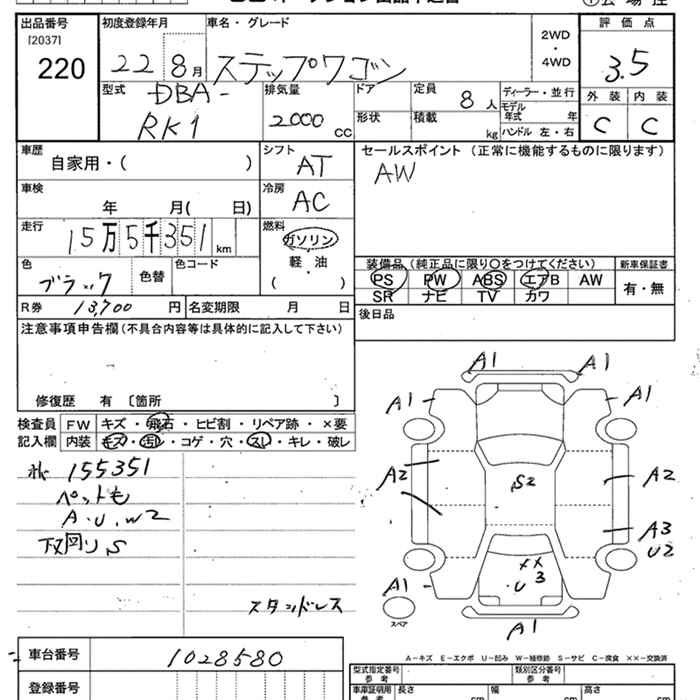 出品番号
[2037]
220
初度登録年月
22 8月
車名・グレード
ステップワゴン
2WD
・
4WD
評価点
3.5
外装 内装
C C
型式
DBA-
RK1
排気量
2000 CC
ドア
形状
定員
8人
積載
kg
ディーラー・並行
モデル年式 年
ハンドル 左・右
車歴
自家用・( )
シフト
AT
セールスポイント (正常に機能するものに限ります)
AW
車検
年 月( 日)
冷房
AC
走行
15万5千351 km
燃料
ガソリン
軽・油
( )
色
ブラック
色替
色コード
装備品 (純正品に限り○をつけてください)
PS PW ABS エアB AW
SR ナビ TV カワ
新車保証書
有・無
R券 13,700 円
名変期限 月 日
後日品
注意事項申告欄(不具合内容等は具体的に記入して下さい)
修復歴 有 〔箇所 〕
検査員
記入欄
FW キズ・飛石・ヒビ割・リペア跡・×要
内装 キズ・汚レ・コゲ・穴・スレ・キレ・破レ
155351
ペットも
A.U.W2
下回りS
スタッドレス
A1 A1
A1 A1
A2 S2 A2
A3
U2
×× U3
A1
A1
スペア
A-キズ E-エクボ U-凹み W-補修跡 S-サビ C-腐食 ××-交換済
車台番号
1028580
登録番号
型式指定番号
参考
類別区分番号
参考
車庫証明用
参考
長さ cm
幅 cm
高さ cm